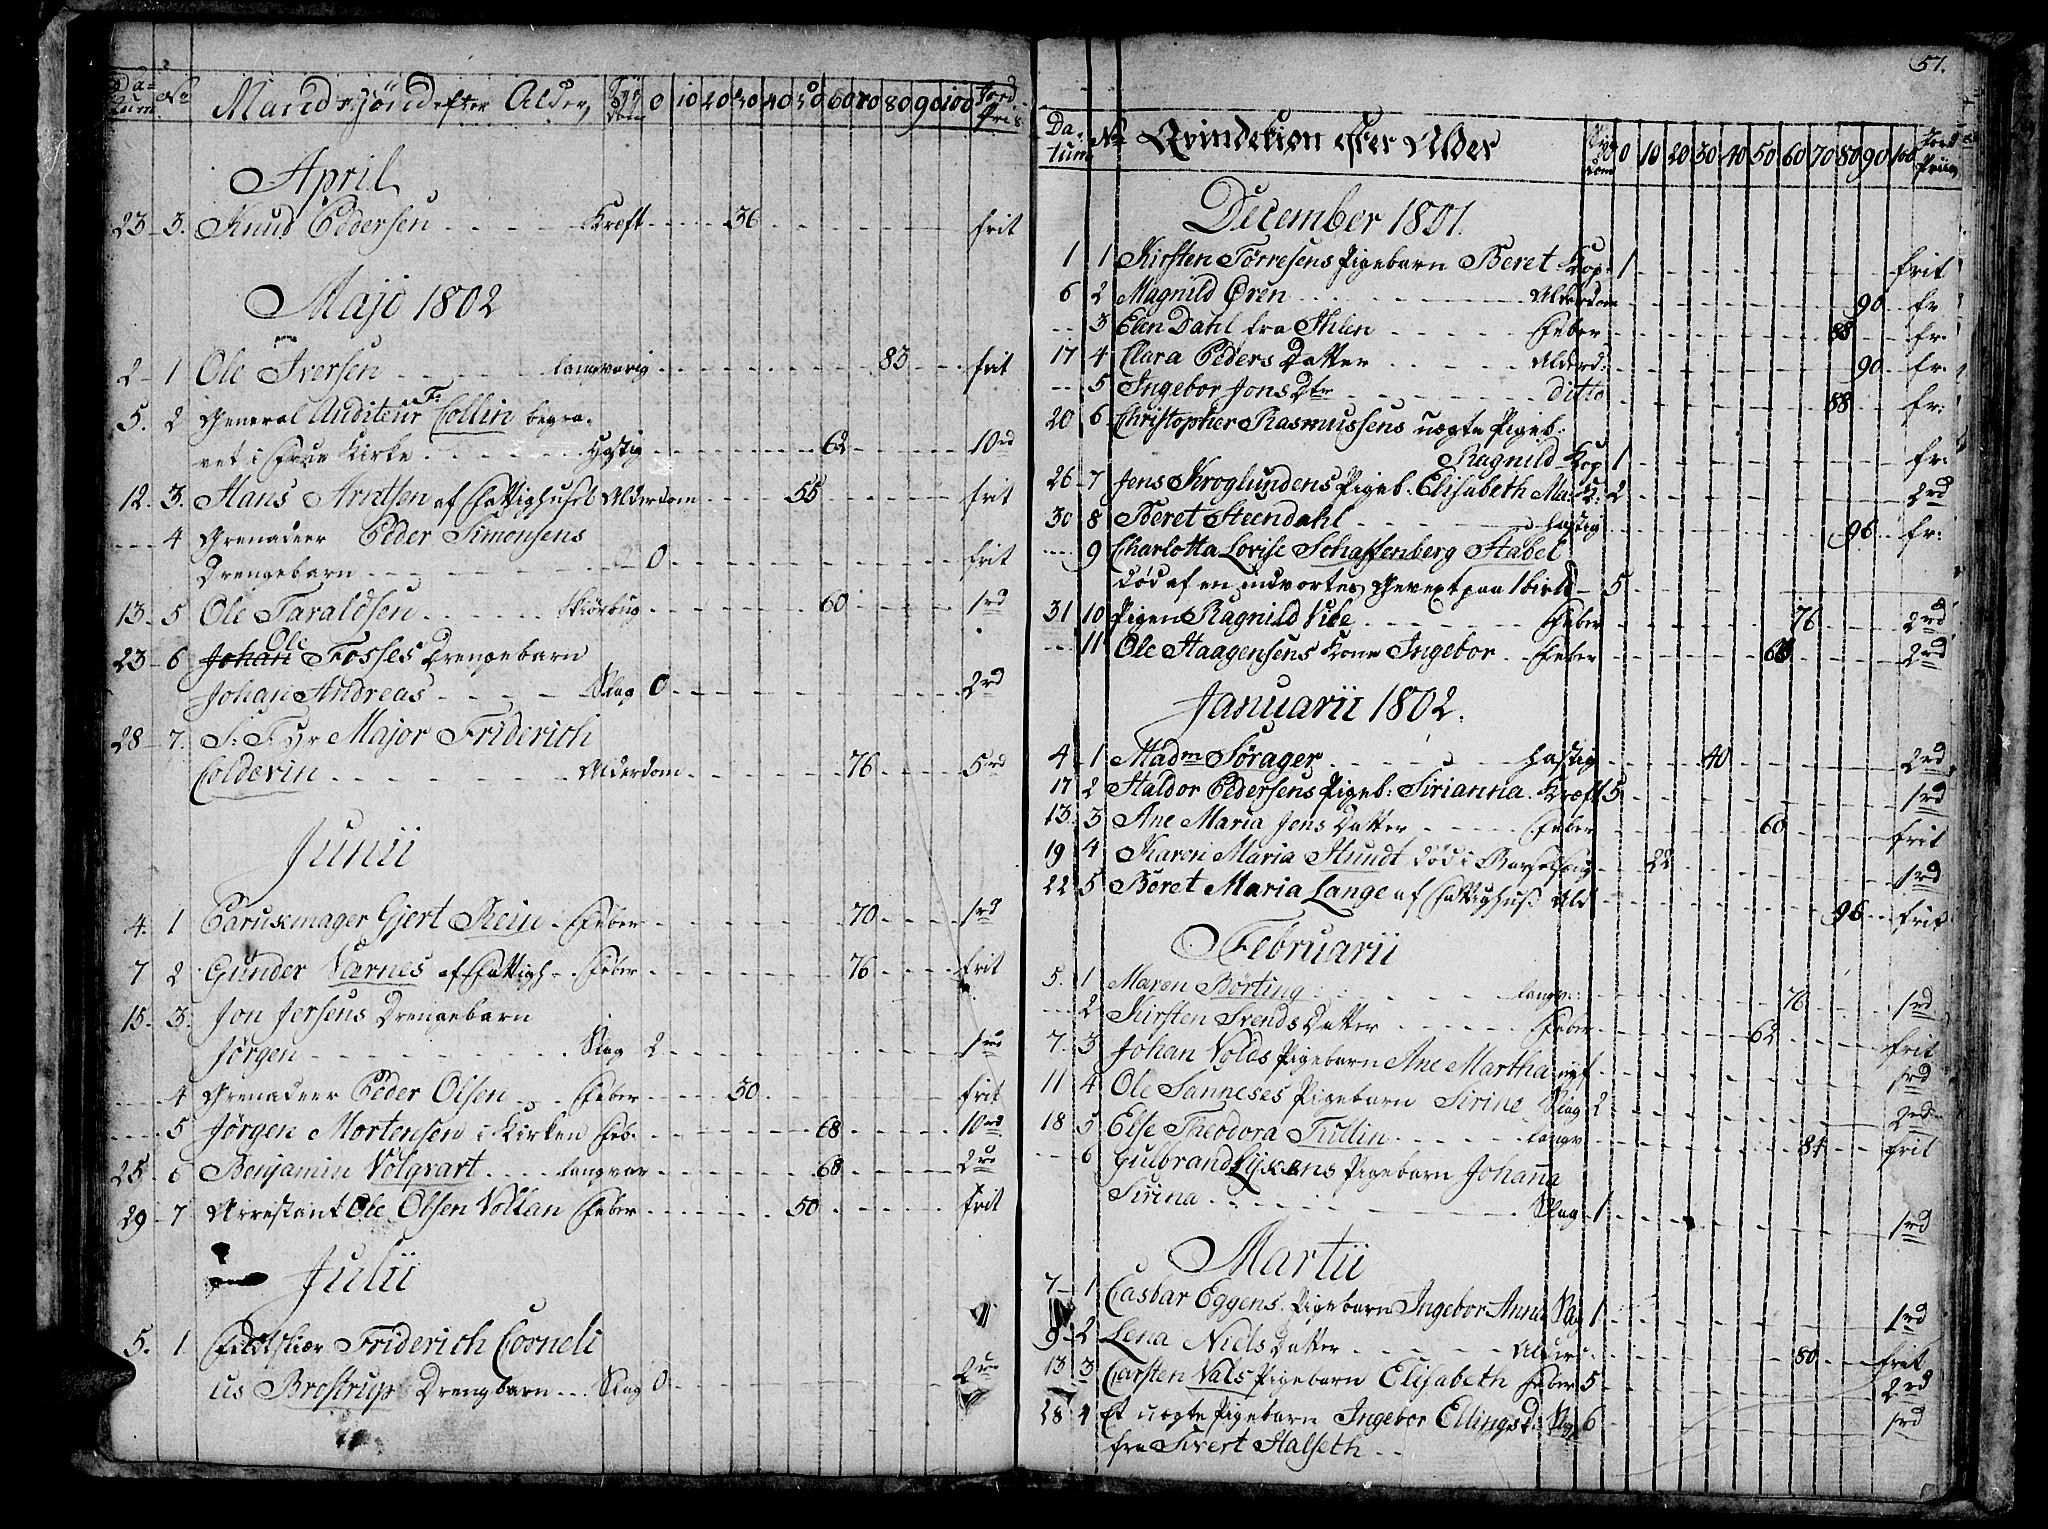 Da- No Mandskiön efter Alder, Syg 0 10 20 30 40 50 60 70 80 90 100 Jord
tum dom Priis
April
23 3. Knud Pedersen Kræft 36 frit
Majo 1802
2 1 Ole Iversen langvarig 83 frit
5. 2 General Auditeur F: Collin begra-
vet i Frue Kirke Hastig 62 10rd
12. 3. Hans Arntsen af Fattighuset Alderdom 55 frit
4 Grenadeer Peder Simonsens
Drengebarn 0 frit
13. 5 Ole Taraldsen Skiørbug 60 1rd
23 6 Ole Fosses Drengebarn
Johan Andreas Slag 0 2rd
28 7. S: T: Hr Major Friderich
Coldevin Alderdom 76 5rd
Junii
4. 1 Parukmager Gjert Rein Feber 70 1rd
7 2 Gunder Værnes af Fattigh Feber 76 frit
15. 3. Jon Jersens Drengebarn
Jørgen Slag 2 1rd
4 Grenadeer Peder Olsen Feber 30 frit
5 Jørgen Mortensen i Kirken Feb. 68 10rd
25 6 Benjamin Volqvart langvar 68 2rd
29 7 Arrestant Ole Olsen Voltan Feber 50 frit
Julii
5. 1 Feldtskiær Friderich Corneli
us Brostrups Drengbarn Slag 0 2rd
57.
Da- No Qvindekion efter Alder Syg 0 10 20 30 40 50 60 70 80 90 100 Jord
tum dom Priis
December 1801.
1 1 Kirsten Torresens Pigebarn Beret Kop 1 frit
6 2 Magnild Ören Alderdom 90 fr
3 Elen Dahl fra Ihlen Feber 88 fr:
17 4 Clara Peders Datter Alderd: 90 fr:
5 Ingebor Jons Dtr ditto 88 fr:
20 6 Christopher Rasmussens uægte Pigeb:
Ragnild Kop 1 fr:
26 7 Jens Kroglundens Pigeb: Elisabeth Ma: K: 2 2rd
30 8 Beret Steendahl hastig 96 fr:
9 Charlotta Lovise Schaffenberg Stabel
død af en indvortes Gevext paa 5
31 10 Pigen Ragnild Vibe Feber 76 2rd
11 Ole Haagensens Kone Ingebor Feber 68 2rd
Januarii 1802.
4 1 Madm Sörager hastig 40 2rd
17 2 Haldor Pedersens Pigeb: Sirianna Kræft 5 1rd
13. 3 Ane Maria Jens Datter Feber 60 frit
19 4 Karen Maria Hundt død i Barselseng 22 1rd
22 5 Beret Maria Lange af Fattighus: Ald 96 frit
Februarii
5. 1 Maren Börting langv: 76 1rd
2 Kirsten Svends Datter Feber 62 frit
7. 3 Johan Volds Pigebarn Ane Martha nyf 1rd
11 4 Ole Sanneses Pigebarn Sirine Slag 2 2rd
18 5 Else Theodora Tullin langv 84 frit
6 Gulbrand Pigebarn Johana
Sirina Slag 1 1rd
Martii
7 1 Casbar Eggens Pigebarn Ingebor Anna Slag 1 1rd
9 2 Lena Niels Datter 80 frit
13 3 Carsten Vals Pigebarn Elisabeth Feber 5 2rd
28 4 Et uægte Pigebarn Ingebor Ellingsd: Slag 6 1rd
fra Sivert Halseth